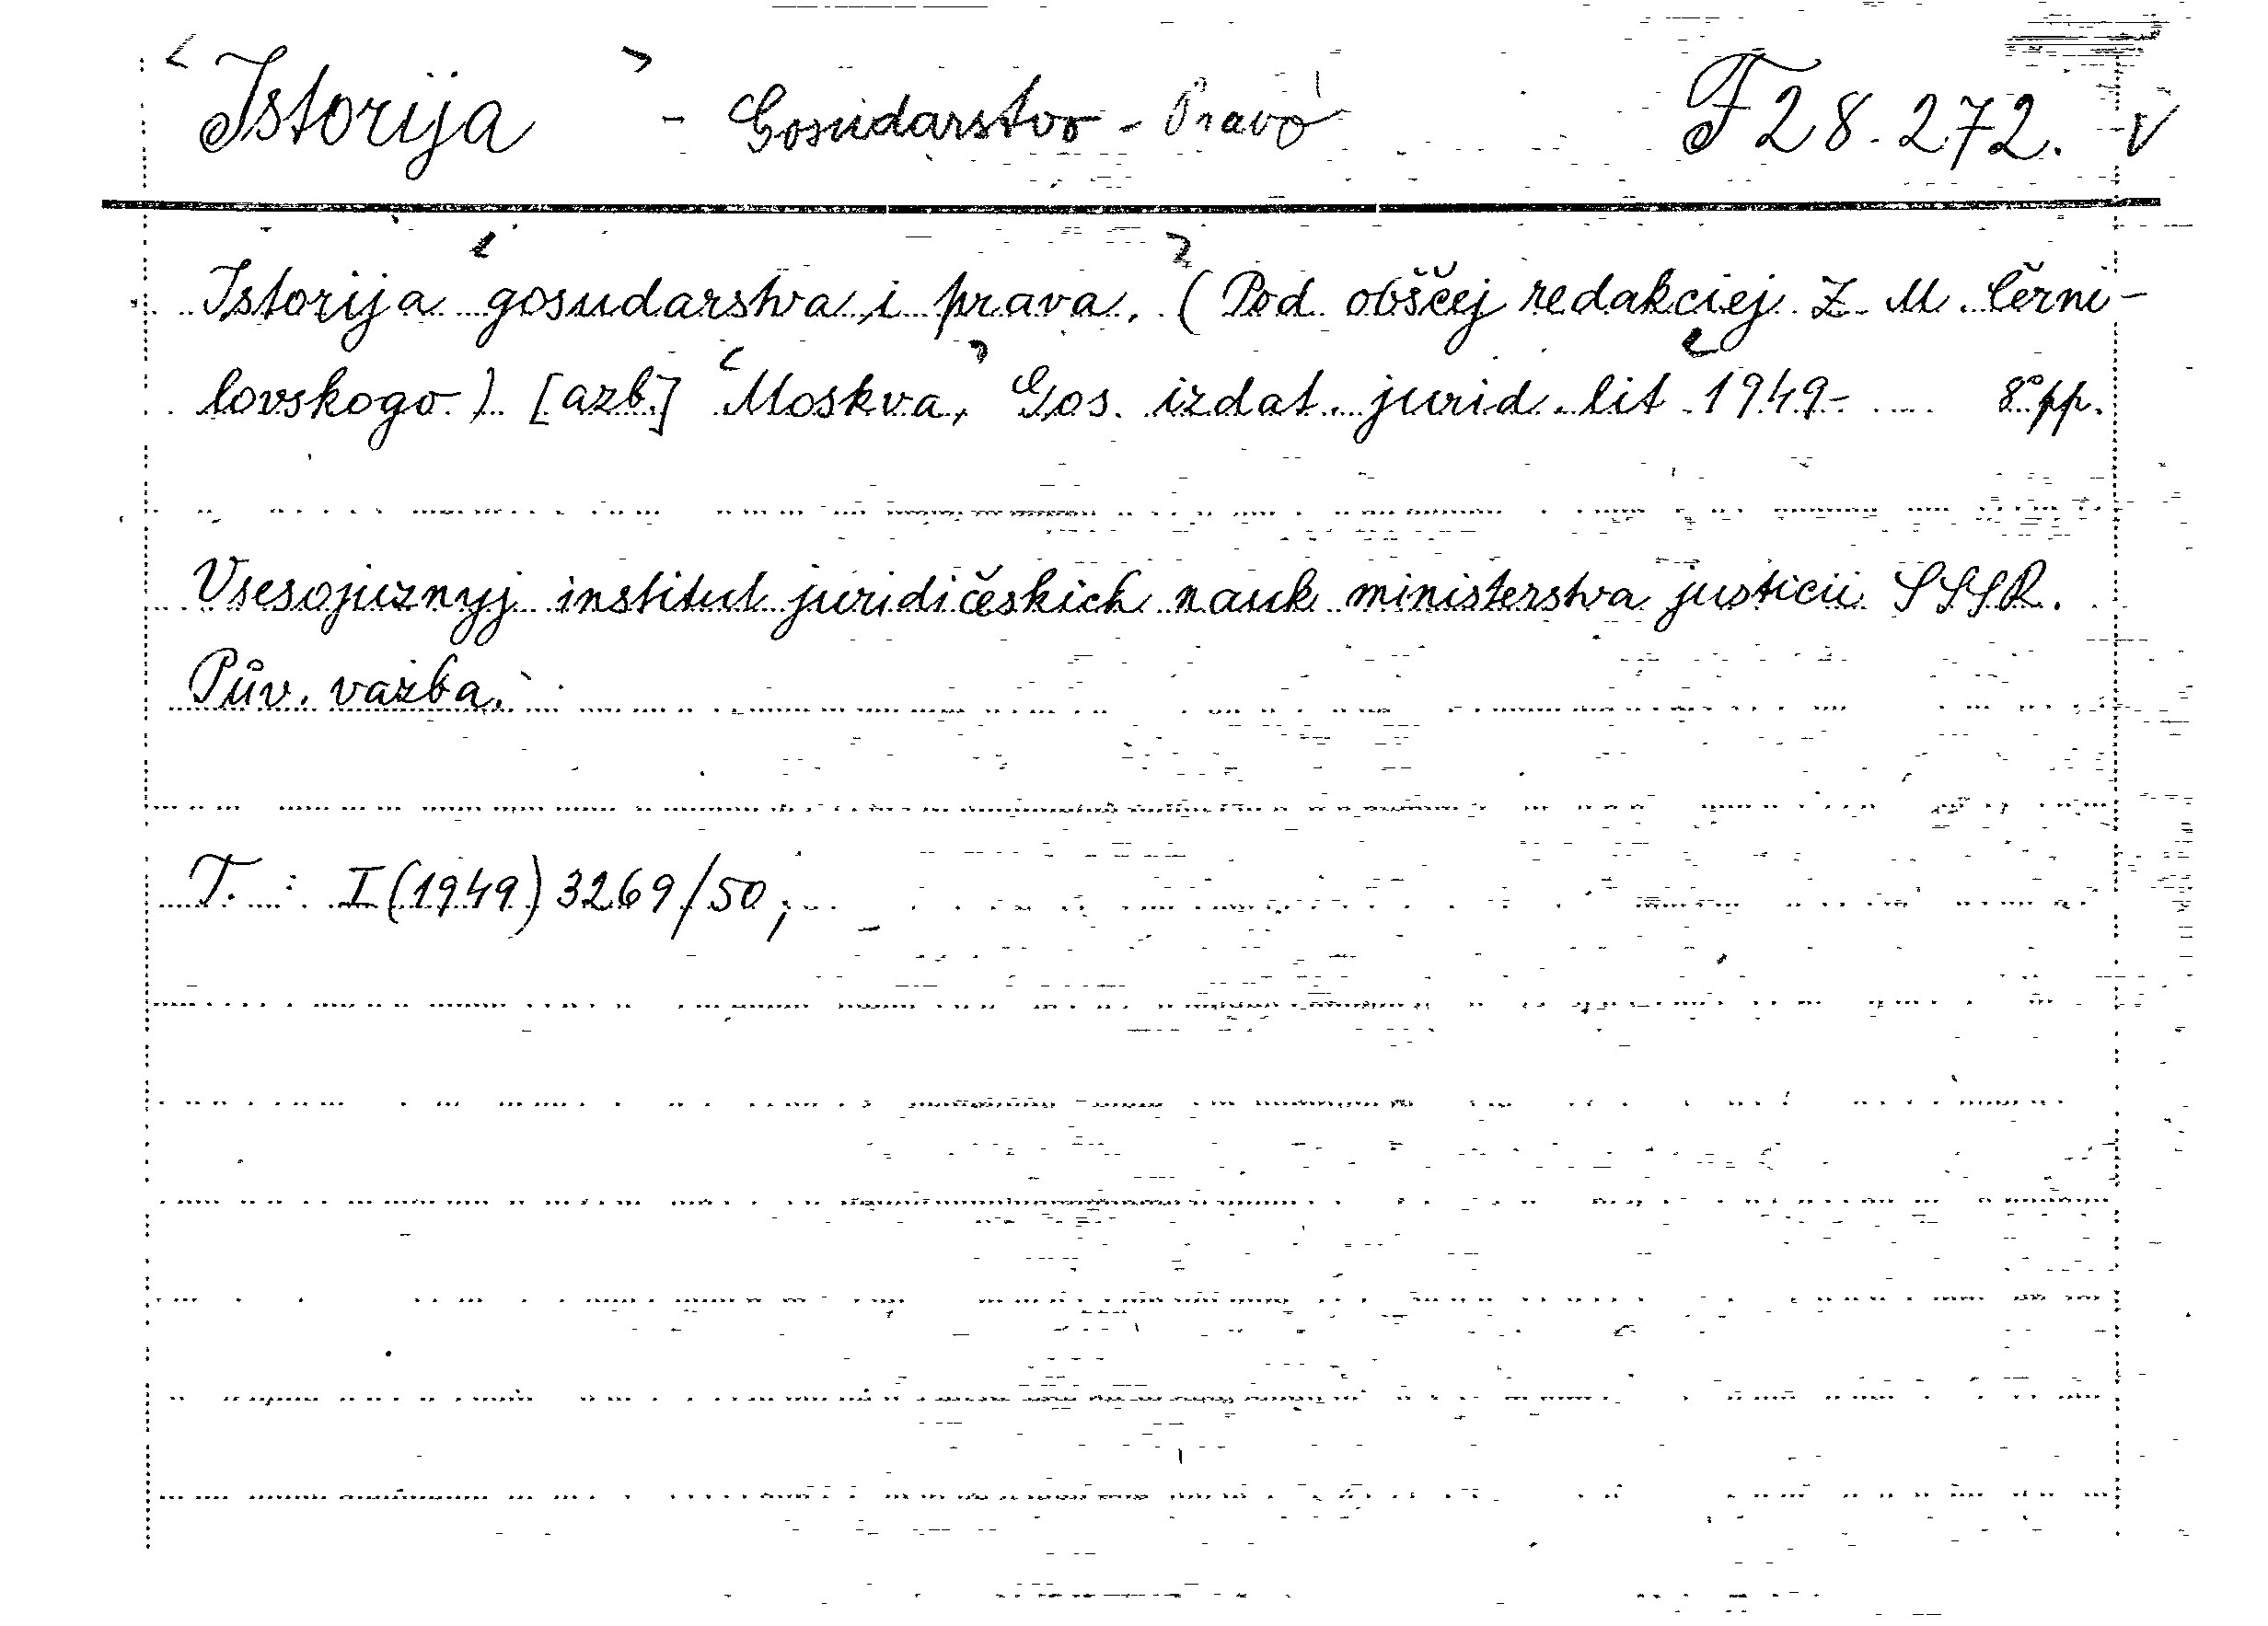 Istorija - Gosudarstvo - Pravo F 28.272. V
Istorija gosudarstva i prava. (Pod obščej redakciej Z. M. Černi-
lovskogo). [azb.] Moskva, Gos. izdat. jurid. lit 1949- 8° pp.
Vsesojuznyj institut juridičeskich nauk ministerstva justicii SSSR.
Pův. vazba.
T. : I (1949) 3269/50;